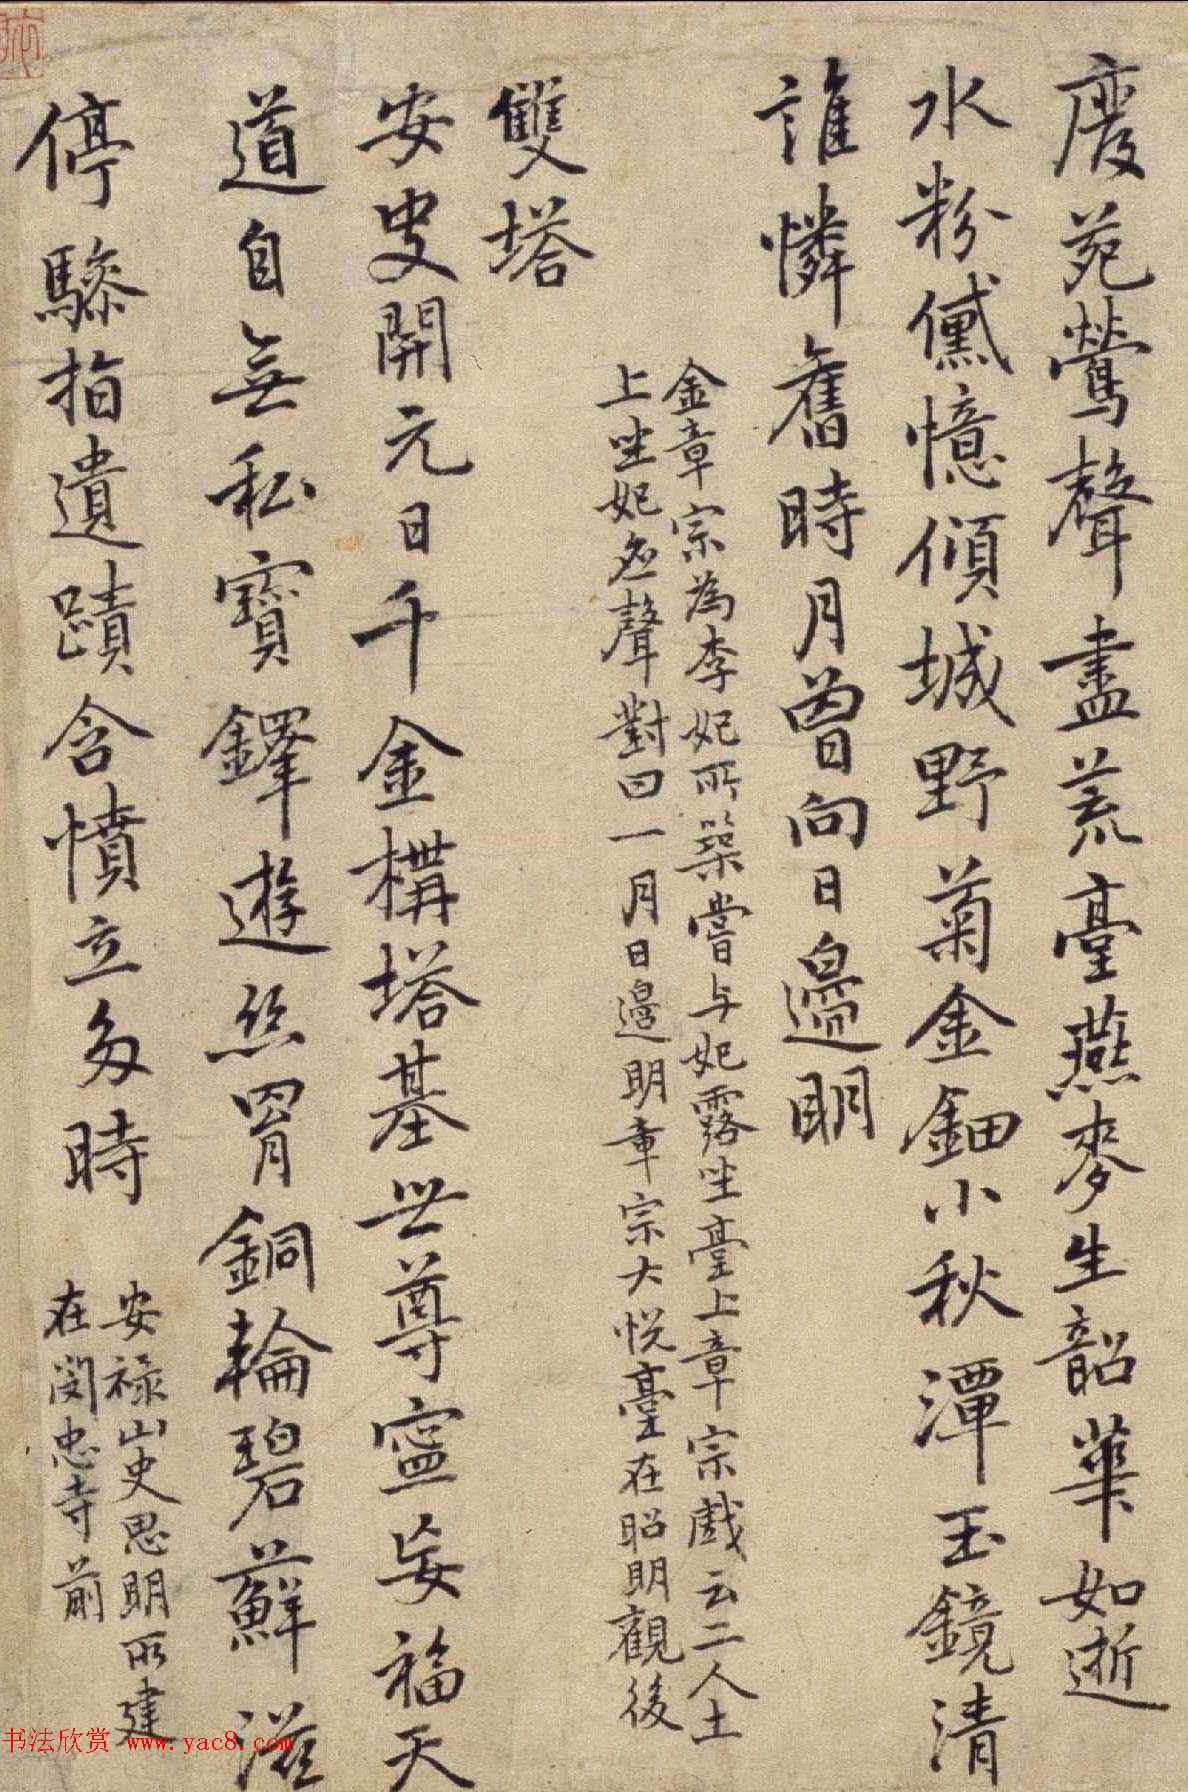 廢苑鶯聲盡荒臺燕麥生韶華如逝
水粉黛憶傾城野菊金鈿小秋潭玉鏡清
誰憐舊時月曾向日邊明
金章宗為李妃所築嘗與妃露坐臺上章宗戲云二人土
上坐妃應聲對曰一月日邊明章宗大悅臺在昭明觀後
雙塔
安史開元日千金構塔基世尊寧妄福天
道自無私寶鐸遊絲罥銅輪碧蘚滋
停驂指遺蹟含憤立多時
安祿山史思明所建
在閔忠寺前
书法欣赏 www.yac8.com